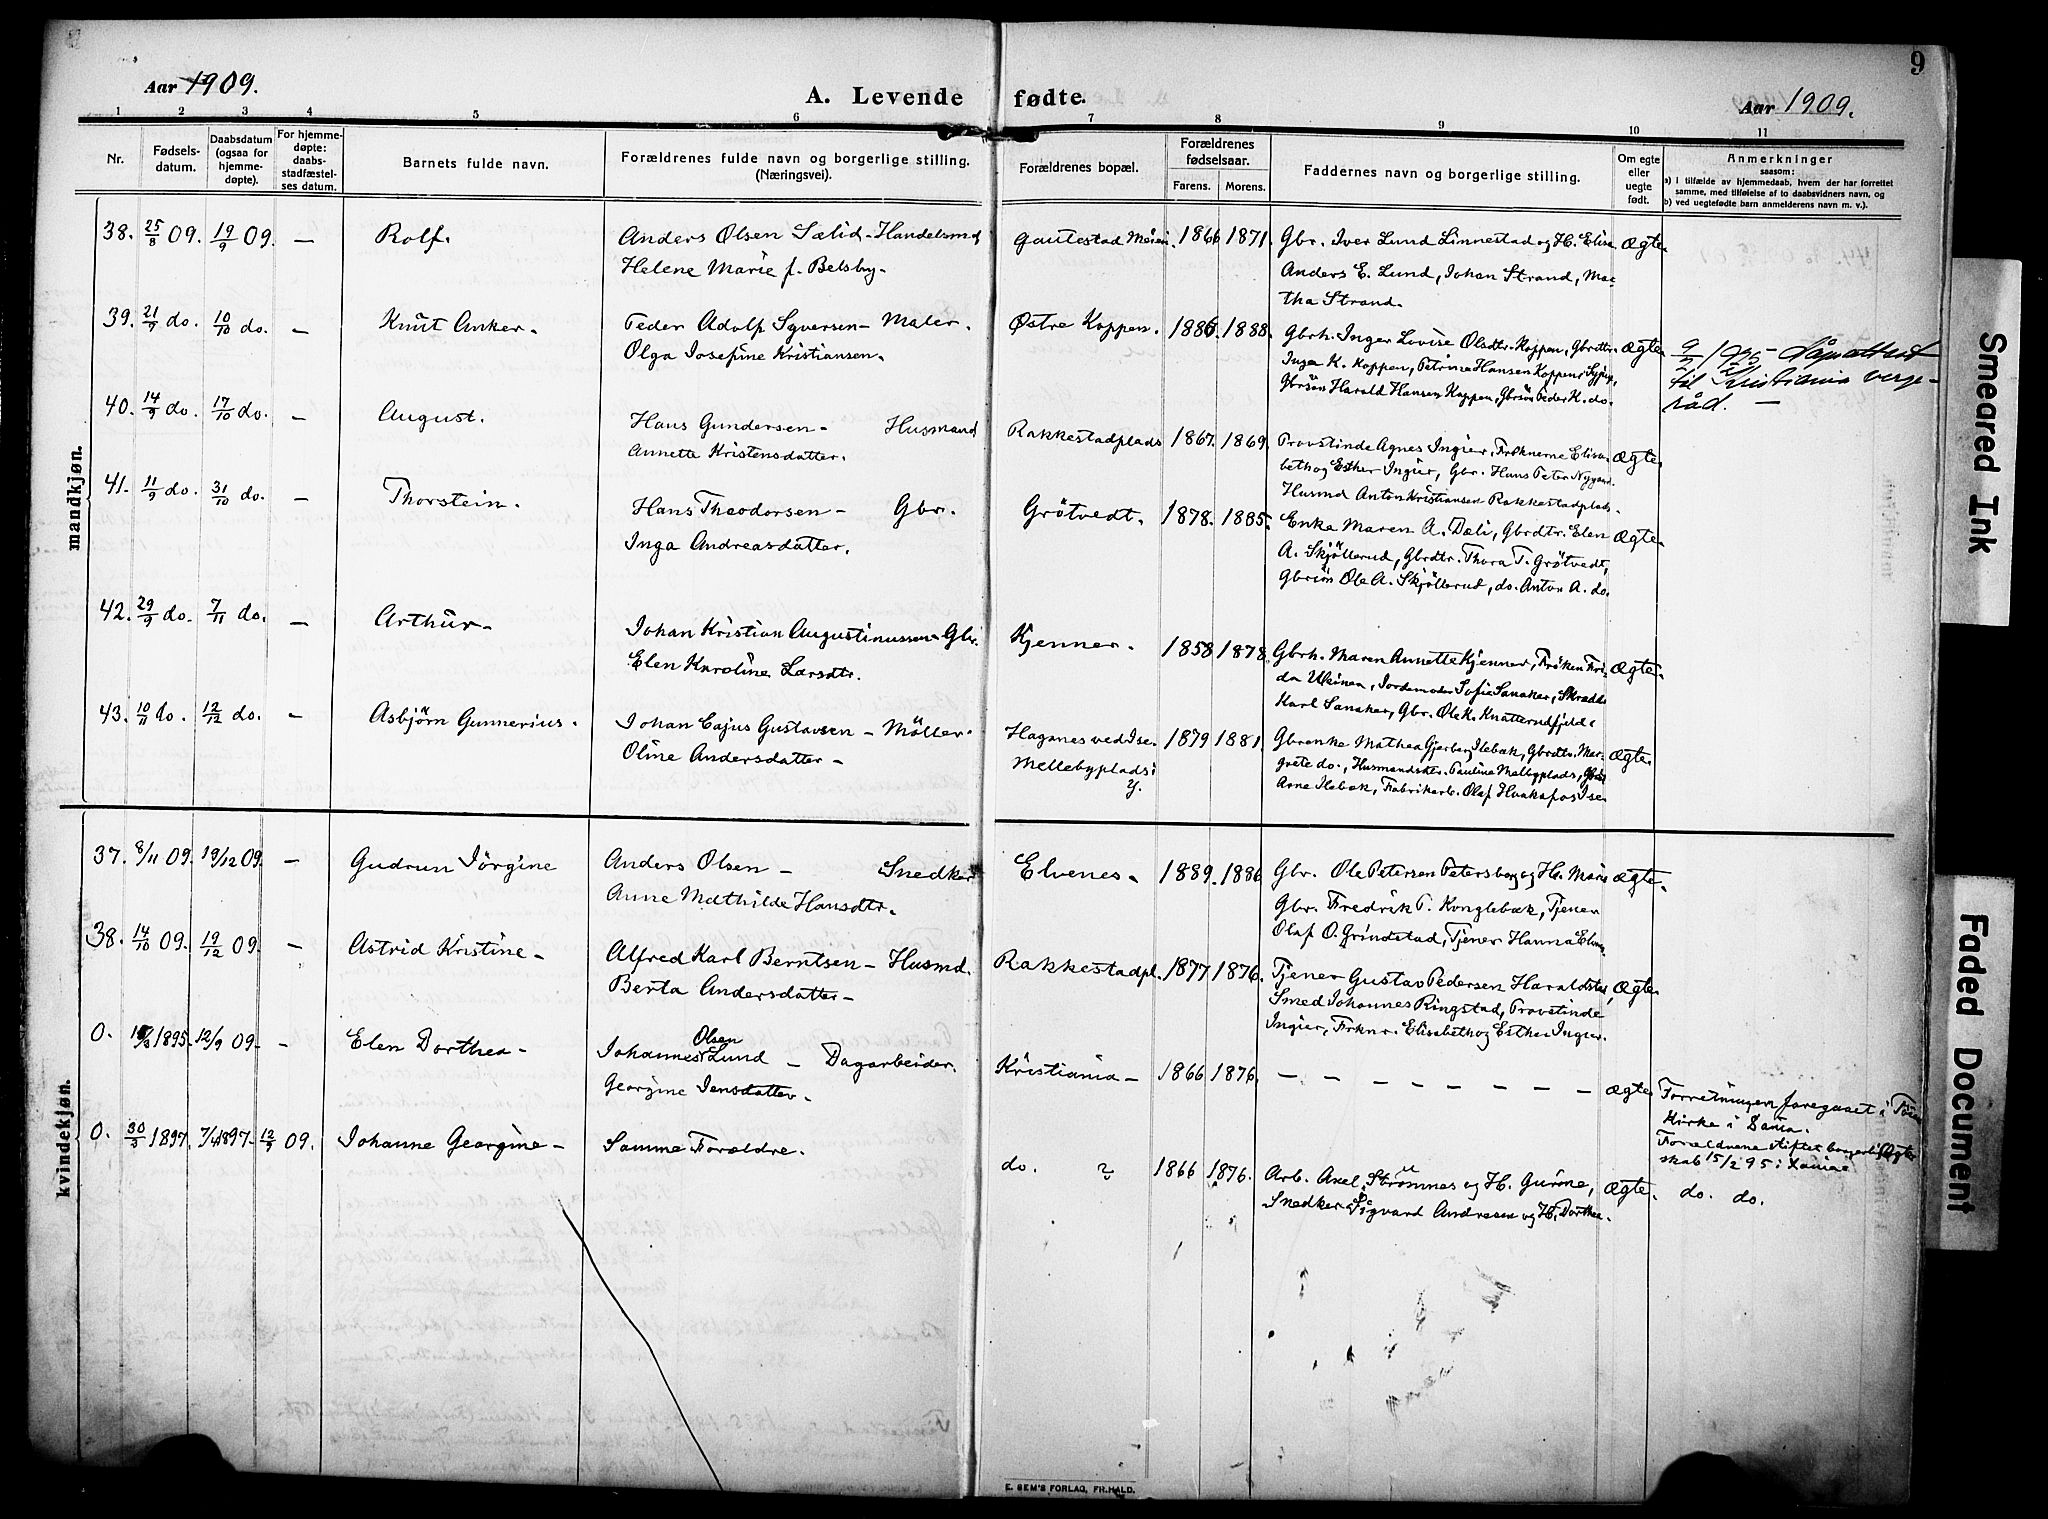 9
Aar 1909.
A. Levende fødte.
Aar 1909.
1 2 3 4 5 6 7 8 9 10 11
Nr.
Fødsels-
datum.
Daabsdatum
(ogsaa for
hjemme-
døpte).
For hjemme-
døpte:
daabs-
stadfæstel-
ses datum.
Barnets fulde navn.
Forældrenes fulde navn og borgerlige stilling.
(Næringsvei).
Forældrenes bopæl.
Forældrenes
fødselsaar.
Farens. Morens.
Faddernes navn og borgerlige stilling.
Om egte
eller
uegte
født.
Anmerkninger
saasom:
a) i tilfælde av hjemmedaab, hvem der har forrettet
samme, med tilføielse af to daabsvidners navn, og
b) ved uegtefødte barn anmelderens navn m. v.).
mandkjøn.
38. 25/8 09. 19/9 09. — Rolf.
Anders Olsen Sælid - Handelsmd
Helene Marie f. Belsby.
Gautestad 1866 1871.
Gbr. Iver Lund Linnestad og H. Elise
Anders E. Lund, Johan Strand, Mar-
tha Strand.
Ægte
39. 21/9 do. 10/10 do. — Knut Anker.
Peder Adolf Syversen — Maler.
Olga Josefine Kristiansen.
Østre Koppen. 1886. 1888.
Gbrh. Inger Lovise Olsdtr. Koppen, Gbrdtr.
Inga K. Koppen, Petrine Hansen Koppen,
Gbrsön Harald Hansen Koppen, Gbrsön Peder K. do.
Ægte
9/7 1925 Dåpsattest
til Kristiania verge-
råd. —
40. 14/9 do. 17/10 do. — August.
Hans Gundersen — Husmand
Annette Kristensdatter.
Rakkestadplads 1867. 1869.
Provstinde Agnes Ingier, Frøknerne Elisa-
beth og Esther Ingier, Gbr. Hans Peter Nygaard
Husmd Anton Kristiansen Rakkestadplads.
Ægte
41. 11/9 do. 31/10 do. — Thorstein.
Hans Theodorsen — Gbr.
Inga Andreasdatter.
Grötvedt. 1878. 1885.
Enke Maren A. Dæli, Gbrdtr. Elen
A. Skjöllerud, Gbrdtr. Thora T. Grötvedt,
Gbrsön Ole A. Skjöllerud, do. Anton A. do.
Ægte
42. 29/9 do. 7/11 do. — Arthur
Johan Kristian Augustinussen — Gbr.
Elen Karoline Larsdtr.
Kjenner. 1858 1878.
Gbrh. Maren Annette Kjenner, Frøken Fri-
da Ulsinen, Jordemoder Sofie Sanaker, Skrædder
Karl Sanaker, Gbr. Ole K. Knatterudfjeld.
Ægte
43. 10/11 do. 12/12 do. — Asbjörn Gunnerius.
Johan Cajus Gustavsen — Möller.
Oline Andersdatter —
Haganes ved Ise.
Mellebyplads
1879 1881.
Gbrenke Mathea Gjerberg Ilebæk, Gbrdtr. Mar-
grete do., Husmandsktr. Pauline Mellbyplads,
Arne Ilebæk, Fabrikarb. Olaf Hvakafos Ise
Ægte
kvindekjøn.
37. 8/11 09. 19/12 09. — Gudrun Jörgine
Anders Olsen — Snedker
Anne Mathilde Hansdtr.
Elvenes. 1889. 1886
Gbr. Ole Petersen Petersborg og H. Marie
Gbr. Fredrik P. Konglebæk, Tjener
Olaf O. Grindstad, Tjener Hanna
Ægte.
38. 14/10 09. 19/12 09. — Astrid Kristine
Alfred Karl Berntsen — Husmd.
Berta Andersdatter —
Rakkestadpl. 1877 1876.
Tjener Gustav Pedersen Haraldstad,
Smed Johannes Ringstad, Provstinde
Ingier, Frknr. Elisabeth og Esther Ingier.
Ægte
0. 1895. 12/9 09 — Elen Dorthea
Olsen
Johannes Lund — Dagarbeider.
Georgine Jensdatter.
Kristiania — 1866 1876.
— — — — — — — —
Ægte
Forretningen foregaaet i
Kirke i
Forældrene stiftet borgerlig Ægte-
skab 15/2 95 i Xania
0. 30/3 1897. 7/4 1897 — 12/9 09. Johanne Georgine —
Samme Forældre.
do. 1866 1876.
Arb. Axel Strömnes og H. Gurine,
Snedker Sigvard Andresen og H. Dorthea.
Ægte. do. do.
E. SEM'S FORLAG, FR.HALD.
Smeared Ink
Faded Document